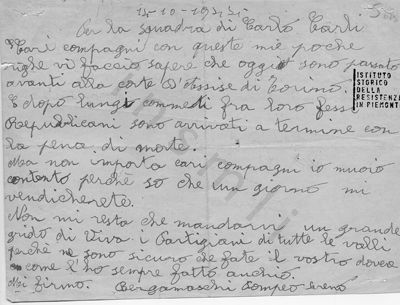 15-10-1944-
Per la squadra di Carlo Carli
Cari compagni con queste mie poche
righe vi faccio sapere che oggi sono passato
avanti alla corte D'Assise di Torino.
E dopo lungi commedi fra loro fessi
Repubblicani sono arrivati a termine con
la pena di morte.
Ma non importa cari compagni io muoio
contento perchè so che un giorno mi
vendicherete.
Non mi resta che mandarvi un grande
grido di Viva i Partigiani di tutte le valli
perchè ne sono sicuro che fate il vostro dovere
come l'ho sempre fatto anch'ió.
Mi firmo. Bergamaschi Pompeo
ISTITUTO
STORICO
DELLA
RESISTENZA
IN PIEMONT
insmli